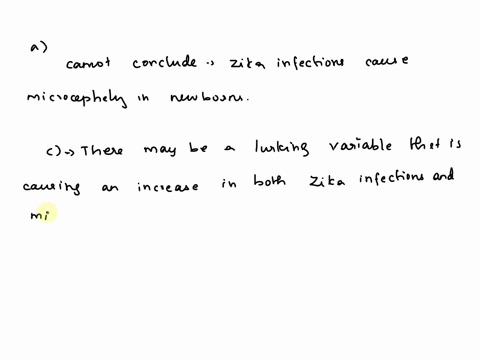 a)
cannot conclude → zika infections cause
microcephely in newborns.
c) → There may be a lurking variable that is
causing an increase in both zika infections and
mi